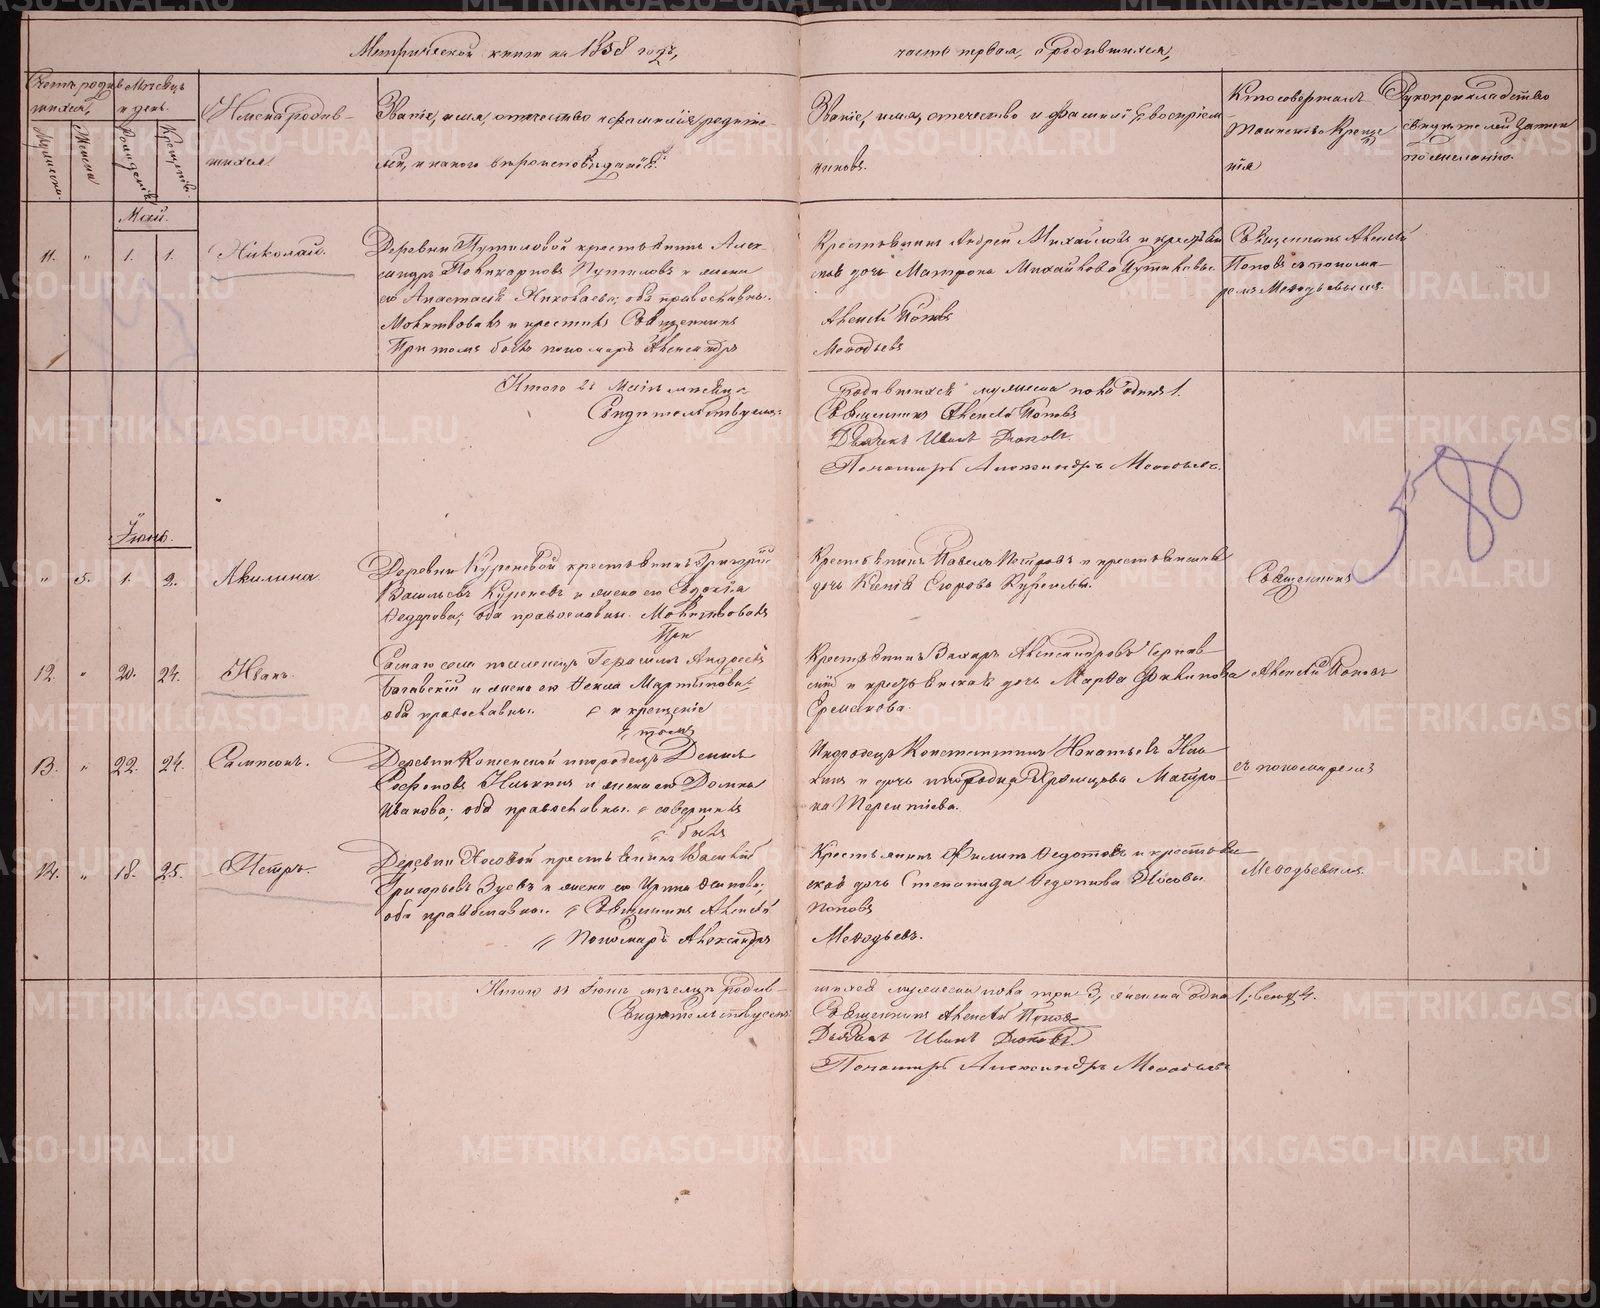 Метрической книги на 1858 годъ,
часть первая, о родившихся,
Счетъ родив-
шихся,
Мѣсяцъ
и день.
Мужеска.
Женска
Рожденія
Крещенія.
Имена родив-
шихся.
Званіе, имя, отчество и фамилія родите-
лей, и какого вѣроисповѣданія.
Званіе, имя, отчество и фамилія воспріем-
никовъ.
Кто совершалъ
таинство Креще-
нія
Рукоприкладство
свидѣтелей записи
по желанію.
Май.
11. " 1. 1. Николай.
Деревни Путиловой крестьянинъ Алек-
сандръ Поликарповъ Путиловъ и жена
его Анастасія Николаева; оба православн.
Молитвовалъ и крестилъ Священникъ
При томъ былъ пономарь Александръ
Крестьянинъ Андрей Михайловъ и крестьян-
ская дочь Матрона Михайлова Путилова.
Алексѣй Поповъ
Меѳодьевъ
Священникъ Алексѣй
Поповъ съ понома-
ремъ Меѳодьевымъ.
Итого въ Маѣ мѣсяцѣ
Свидѣтельствуемъ:
Родившихся мужеска пола одинъ 1.
Священникъ Алексѣй Поповъ
Дьячекъ Иванъ
Пономарь Александръ Меѳодьевъ.
586
Іюнь.
" 5. 1. 2. Акилина.
Деревни Куреневой крестьянинъ Григорій
Васильевъ Куреневъ и жена его Евдокія
Ѳедорова; оба православны. Молитвовалъ
При
Крестьянинъ Павелъ Петровъ и крестьянская
дочь Ксенія Егорова
Священникъ
12. " 20. 24. Иванъ.
Герасимъ Андреевъ
и жена его Ѳекла Мартынова;
оба православны. " и крещеніе
" томъ
Крестьянинъ Захаръ Александровъ Чернав-
скій и крестьянская дочь Марѳа Филипова
Алексѣй Поповъ
13. " 22. 24. Сампсонъ.
Деревни инородецъ Данилъ
и жена его Домна
Иванова; оба православны. " совершилъ
" былъ
Инородецъ Константинъ Игнатьевъ
и дочь инородца Матро-
на Терентіева.
съ пономаремъ
14. " 18. 25. Петръ.
Деревни Носовой крестьянинъ Василій
Григорьевъ Зуевъ и жена его Ирина Осипова;
оба православны. " Священникъ Алексѣй
" Пономарь Александръ
Крестьянинъ Филипъ Ѳедотовъ и крестьян-
ская дочь Степанида Носова.
Поповъ
Меѳодьевъ.
Меѳодьевымъ.
Итого въ Іюнѣ мѣсяцѣ родив-
Свидѣтельствуемъ:
шихся мужеска пола три 3, женска одна 1, всего 4.
Священникъ Алексѣй Поповъ
Дьячекъ Иванъ
Пономарь Александръ Меѳодьевъ
METRIKI.GASO-URAL.RU